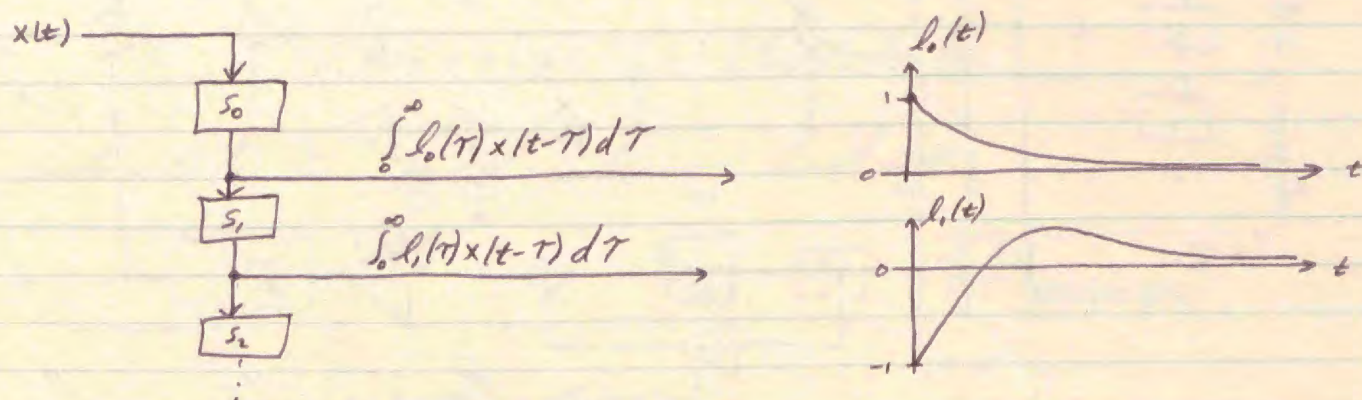 x(t)
S₀
∫₀^∞ l₀(τ) x(t-τ) dτ
S₁
∫₀^∞ l₁(τ) x(t-τ) dτ
S₂
l₀(t)
1
0
t
l₁(t)
0
t
-1